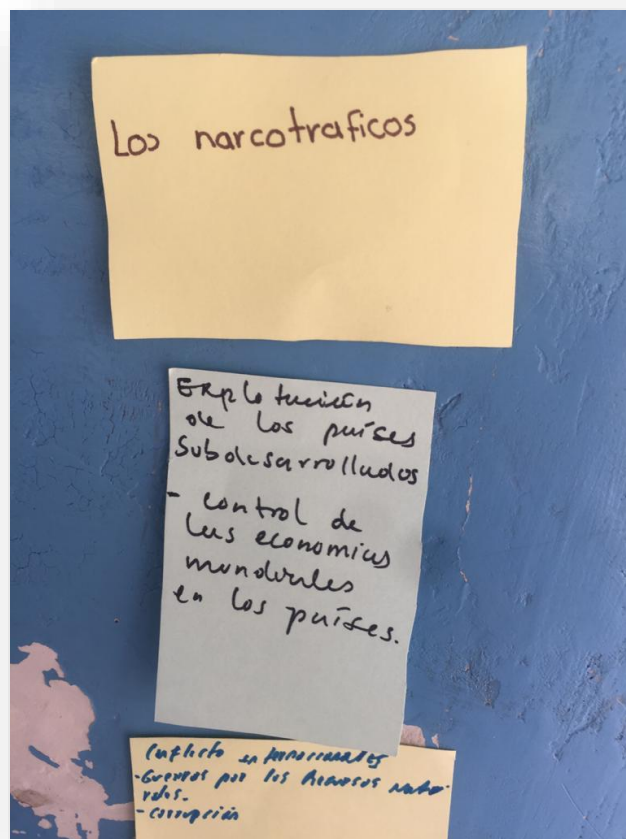 Los narcotraficos
Explotación
de los países
subdesarrollados
- control de
las economias
mundiales
en los países.
Conflicto
-Guerras por los Recursos natu
rales.
- corrupción